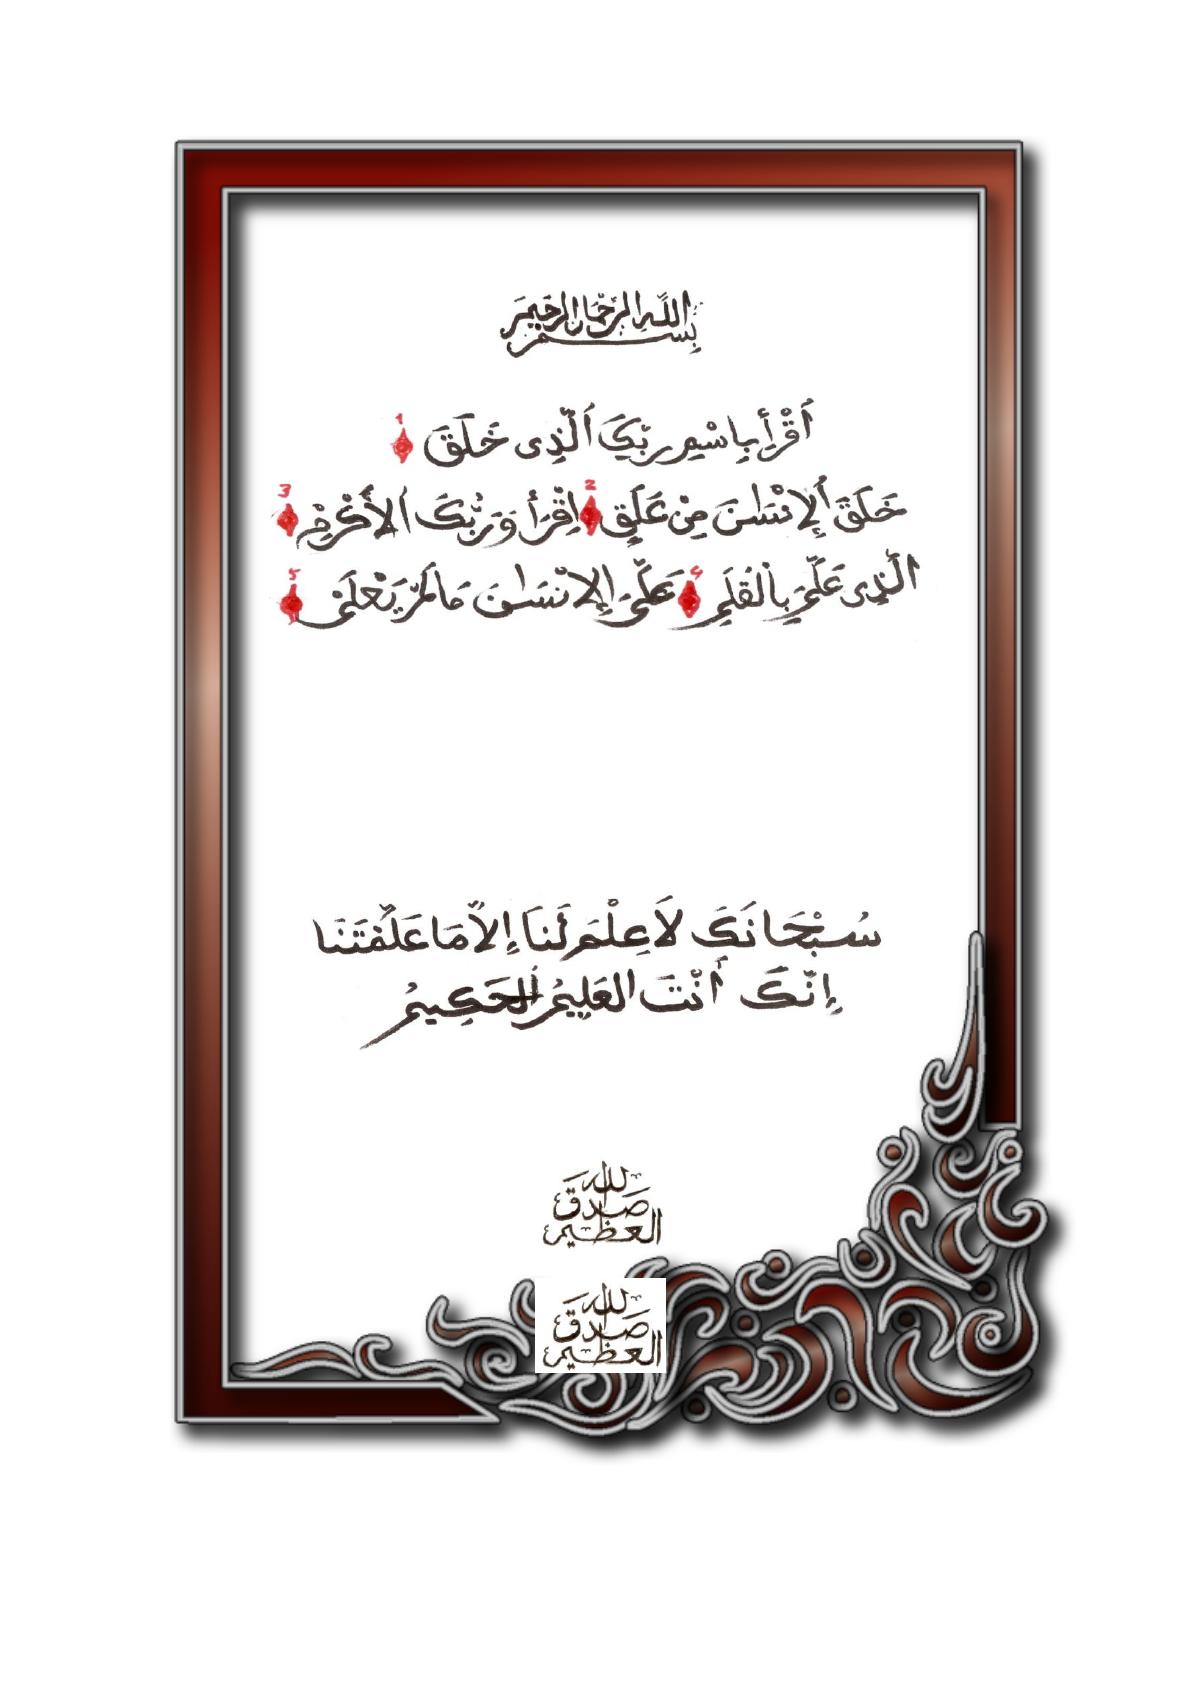 بِسْمِ اللَّهِ الرَّحْمَانِ الرَّحِيمِ
اَقْرَأْ بِاسْمِ رَبِّكَ اَلَّذِى خَلَقَ 1
خَلَقَ اَلْإِنْسَانَ مِنْ عَلَقٍ 2 اِقْرَأْ وَرَبُّكَ الْأَكْرَمُ 3
الَّذِى عَلَّمَ بِالْقَلَمِ 4 عَلَّمَ الْإِنْسَانَ مَا لَمْ يَعْلَمْ 5
سُبْحَانَكَ لَا عِلْمَ لَنَا إِلاَّ مَا عَلَّمْتَنَا
إِنَّكَ أَنْتَ الْعَلِيمُ الْحَكِيمُ
صَدَقَ اللّٰه
العظيم
صَدَقَ اللّٰه
العظيم